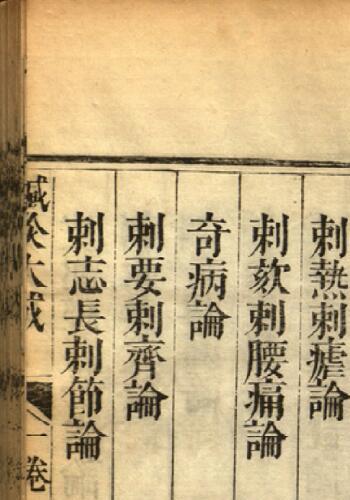 刺熱刺瘧論
刺欬刺腰痛論
奇病論
刺要刺齊論
刺志長刺節論
鍼灸大成
一卷